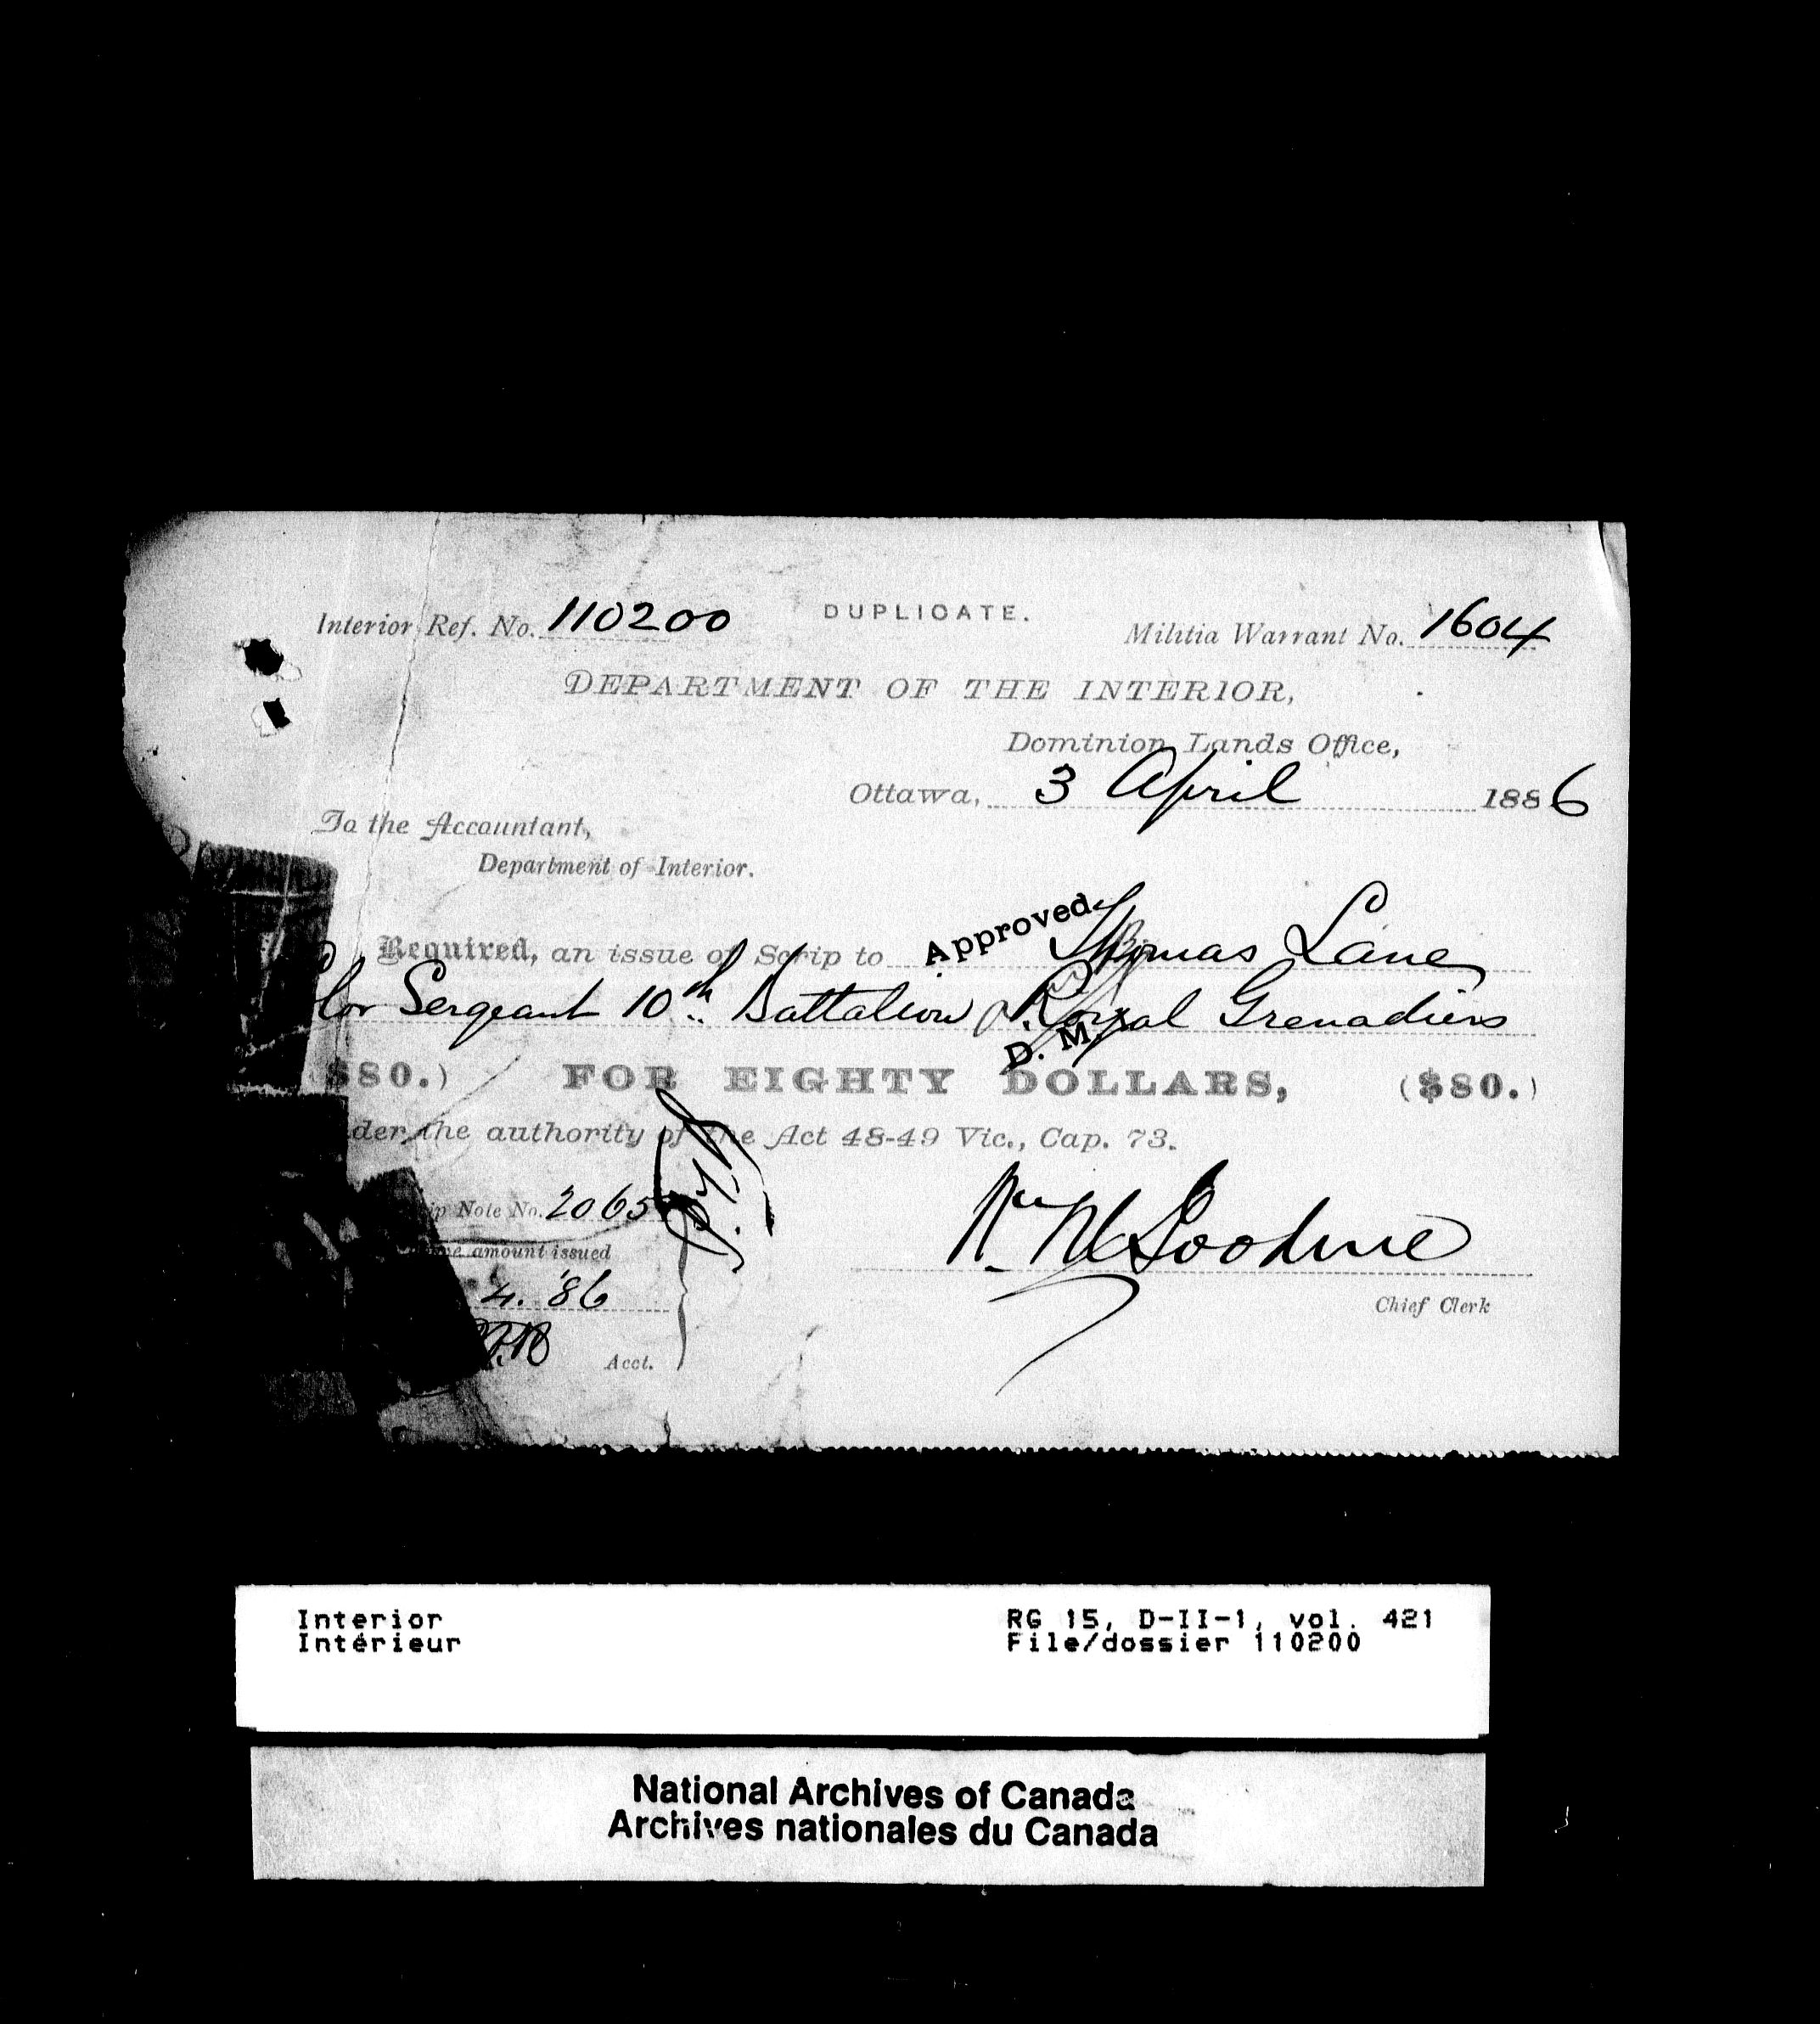 Interior Ref. No. 110200 DUPLICATE. Militia Warrant No. 1604
DEPARTMENT OF THE INTERIOR,
Dominion Lands Office,
Ottawa, 3 April 1886
To the Accountant,
Department of Interior.
Approved
Required, an issue of Scrip to Thomas Lane
lor Sergeant 10th Battalion Royal Grenadiers
D. M.
$80.) FOR EIGHTY DOLLARS, ($80.)
der the authority of the Act 48-49 Vic., Cap. 73.
ip Note No. 2065
amount issued
4. '86
Chief Clerk
Acct.
Interior
Intérieur
RG 15, D-II-1, vol. 421
File/dossier 110200
National Archives of Canada
Archives nationales du Canada